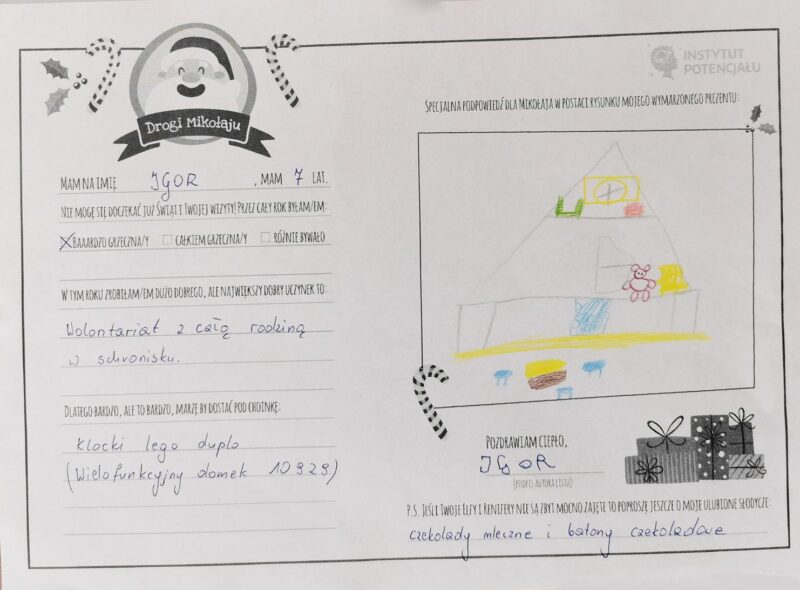 Drogi Mikołaju
INSTYTUT
POTENCJAŁU
MAM NA IMIĘ IGOR, MAM 7 LAT.
NIE MOGĘ SIĘ DOCZEKAĆ JUŻ ŚWIĄT I TWOJEJ WIZYTY! PRZEZ CAŁY ROK BYŁAM/EM:
X BAAARDZO GRZECZNA/Y CAŁKIEM GRZECZNA/Y RÓŻNIE BYWAŁO
W TYM ROKU ZROBIŁAM/EM DUŻO DOBREGO, ALE NAJWIĘKSZY DOBRY UCZYNEK TO:
Wolontariat z całą rodziną
w schronisku.
DLATEGO BARDZO, ALE TO BARDZO, MARZĘ BY DOSTAĆ POD CHOINKĘ:
Klocki lego duplo
(Wielofunkcyjny domek 10929)
SPECJALNA PODPOWIEDŹ DLA MIKOŁAJA W POSTACI RYSUNKU MOJEGO WYMARZONEGO PREZENTU:
POZDRAWIAM CIEPŁO,
IGOR
(PODPIS AUTORA LISTU)
P.S. JEŚLI TWOJE ELFY I RENIFERY NIE SĄ ZBYT MOCNO ZAJĘTE TO POPROSZĘ JESZCZE O MOJE ULUBIONE SŁODYCZE:
czekolady mleczne i batony czekoladowe